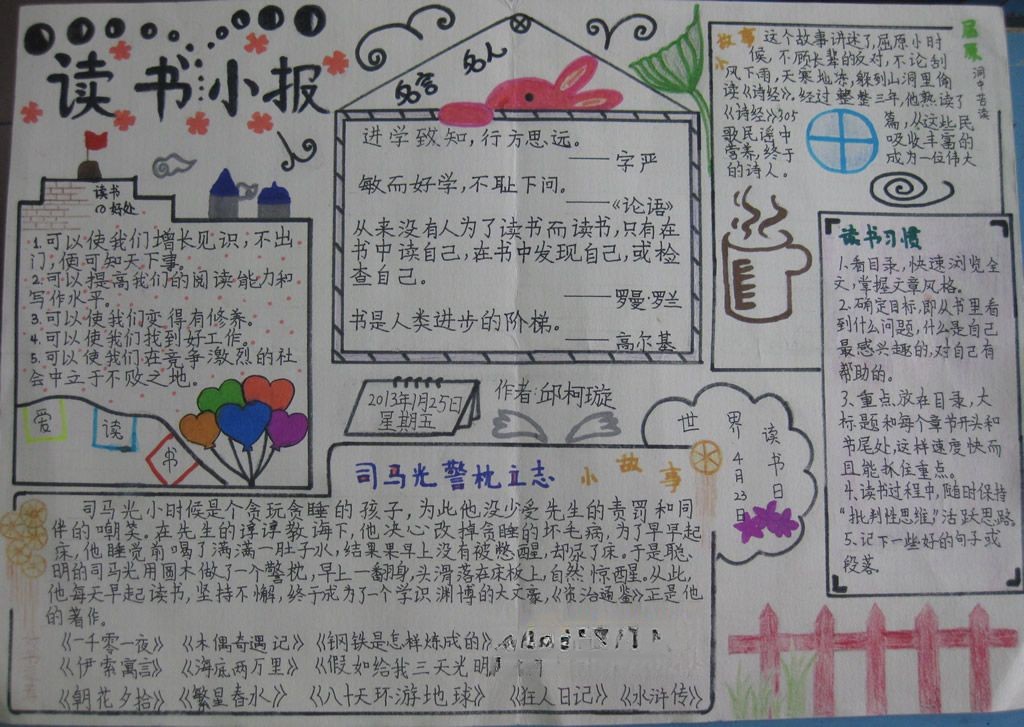 读书小报
读书
の好处
1.可以使我们增长见识,不出
门,便可知天下事。
2.可以提高我们的阅读能力和
写作水平。
3.可以使我们变得有修养。
4.可以使我们找到好工作。
5.可以使我们在竞争激烈的社
会中立于不败之地。
爱
读
书
名人
名言
进学致知,行方思远。
——字严
敏而好学,不耻下问。
——《论语》
从来没有人为了读书而读书,只有在
书中读自己,在书中发现自己,或检
查自己。
——罗曼·罗兰
书是人类进步的阶梯。
——高尔基
2013年1月25日
星期五
作者:邱柯璇
屈原
洞中苦读
故事
小
这个故事讲述了,屈原小时
候,不顾长辈的反对,不论刮
风下雨,天寒地冻,躲到山洞里偷
读《诗经》。经过整整三年,他熟读了
《诗经》305篇,从这些民
歌民谣中吸收丰富的
营养,终于成为一位伟大
的诗人。
读书习惯
1.看目录,快速浏览全
文,掌握文章风格。
2.确定目标,即从书里看
到什么问题,什么是自己
最感兴趣的,对自己有
帮助的。
3.重点放在目录,大
标题和每个章节开头和
节尾处,这样速度快而
且能抓住重点。
4.读书过程中,随时保持
“批判性思维,”活跃思路。
5.记下一些好的句子或
段落。
世界读书日
4月23日
司马光警枕立志
小故事
司马光小时候是个贪玩贪睡的孩子,为此他没少受先生的责罚和同
伴的嘲笑。在先生的谆谆教诲下,他决心改掉贪睡的坏毛病,为了早早起
床,他睡觉前喝了满满一肚子水,结果果早上没有被憋醒,却尿了床。于是聪
明的司马光用圆木做了一个警枕,早上一翻身,头滑落在床板上,自然惊醒。从此,
他每天早起读书,坚持不懈,终于成为了一个学识渊博的大文豪,《资治通鉴》正是他
的著作。
《一千零一夜》《木偶奇遇记》《钢铁是怎样炼成的》
《伊索寓言》《海底两万里》《假如给我三天光明》
《朝花夕拾》《繁星春水》《八十天环游地球》《狂人日记》《水浒传》